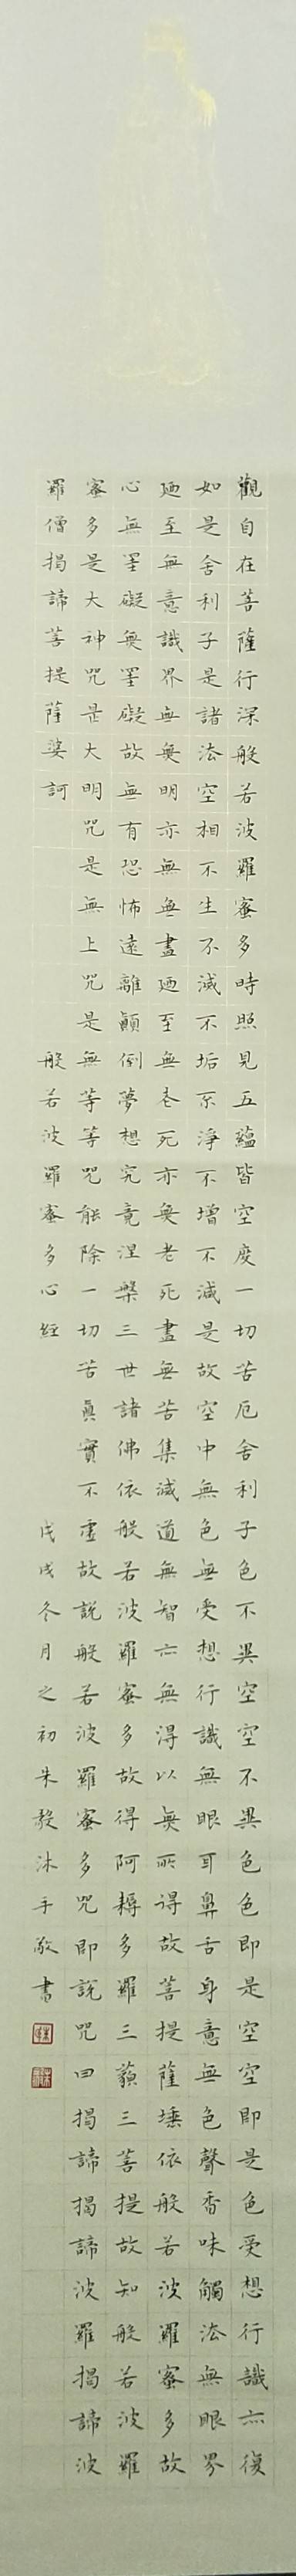 觀自在菩薩行深般若波羅蜜多時照見五蘊皆空度一切苦厄舍利子色不異空空不異色色即是空空即是色受想行識亦復
如是舍利子是諸法空相不生不滅不垢不淨不增不減是故空中無色無受想行識無眼耳鼻舌身意無色聲香味觸法無眼界
廼至無意識界無無明亦無無盡廼至無老死亦無老死盡無苦集滅道無智亦無得以無所得故菩提薩埵依般若波羅蜜多故
心無罣礙無罣礙故無有恐怖遠離顛倒夢想究竟涅槃三世諸佛依般若波羅蜜多故得阿耨多羅三藐三菩提故知般若波羅
蜜多是大神咒是大明咒是無上咒是無等等咒能除一切苦真實不虛故說般若波羅蜜多咒即說咒曰揭諦揭諦波羅揭諦波
羅僧揭諦菩提薩婆訶
般若波羅蜜多心經
戊戌冬月之初朱毅沐手敬書